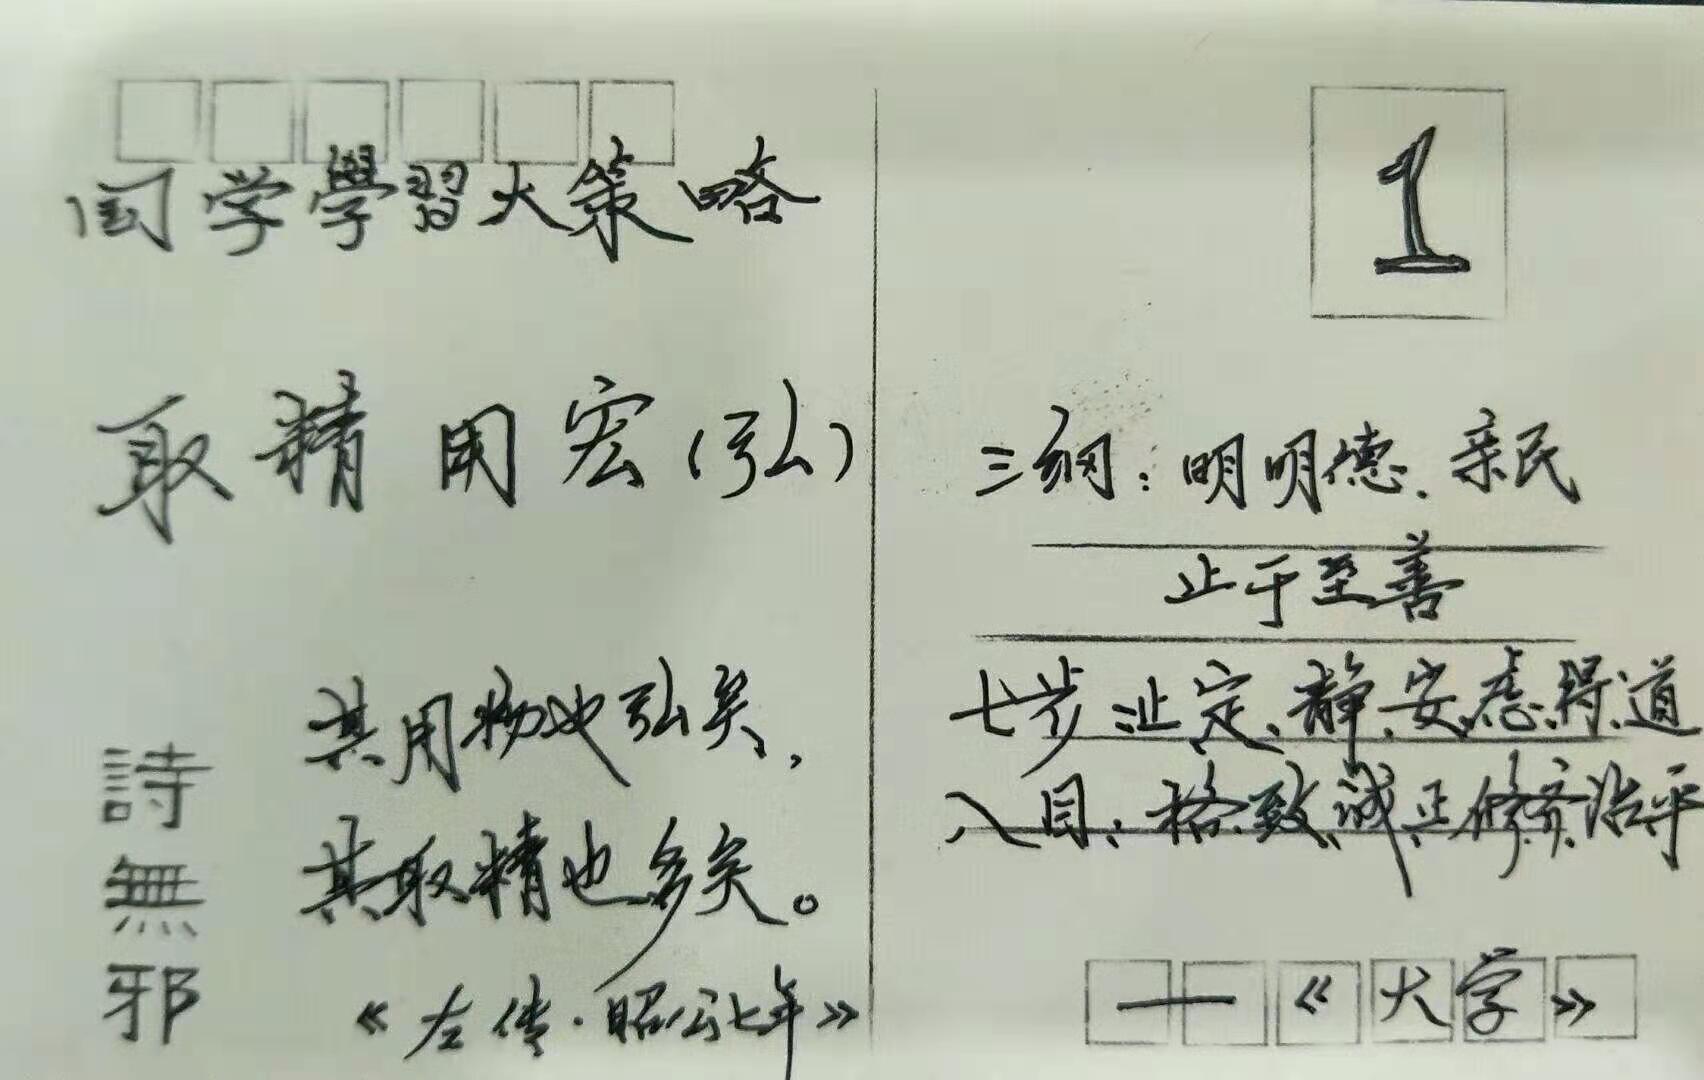 国学學習大策略
取精用宏(弘)
其用物也弘矣,
其取精也多矣。
《左传·昭公七年》
詩無邪
1
三纲:明明德、亲民
止于至善
七步:止、定、静、安、虑、得、道
八目:格、致、诚、正、修、齐、治、平
——《大学》